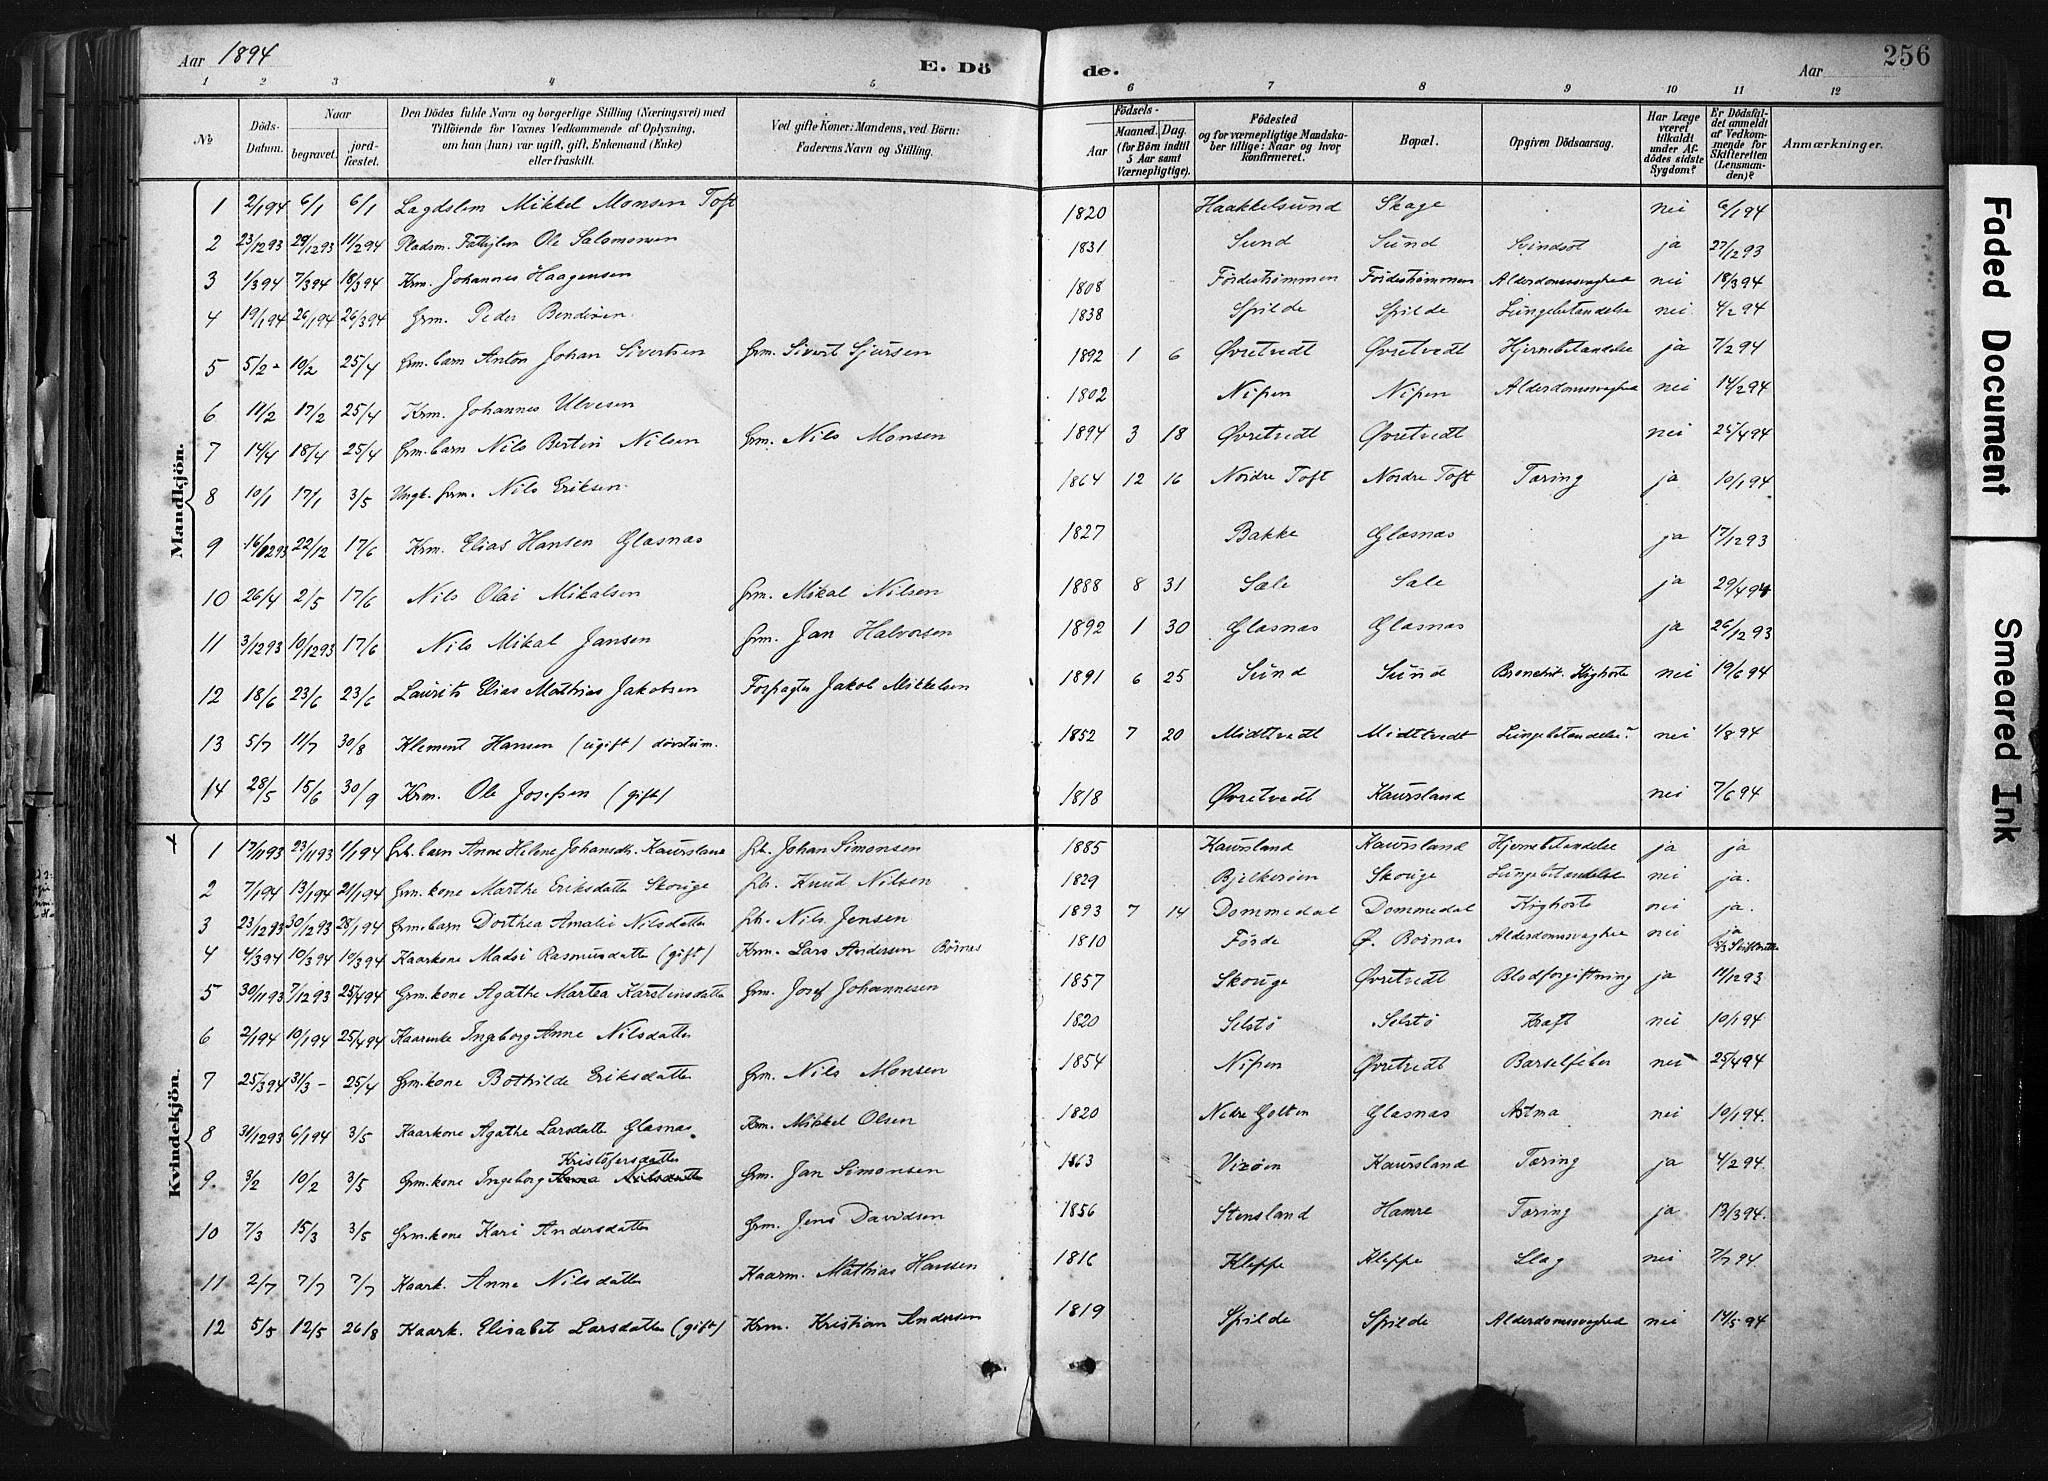 Aar 1894 E. Döde. Aar 256
1 2 3 4 5 6 7 8 9 10 11 12
№ Döds-Datum. Naar begravet. jordfæstet. Den Dödes fulde Navn og borgerlige Stilling (Næringsvei) med Tilföiende for Voxnes Vedkommende af Oplysning, om han (hun) var ugift, gift, Enkemand (Enke) eller fraskilt. Ved gifte Koner: Mandens, ved Börn: Faderens Navn og Stilling. Födsels- Aar Maaned. Dag. (for Börn indtil 5 Aar samt Værnepligtige). Födested og for værnepligtige Mandskaber tillige: Naar og hvor konfirmeret. Bopæl. Opgiven Dödsaarsag. Har Læge været tilkaldt under Afdödes sidste Sygdom? Er Dödsfaldet anmeldt af Vedkommende for Skifteretten (Lensmanden)? Anmærkninger.
Mandkjön.
1 2/1 94 6/1 6/1 Lagdslem Mikkel Monsen Toft 1820 Haakkelsund Skage nei 6/1 94
2 23/12 93 29/12 93 11/2 94 Pladsm. Ole Salomonsen 1831 Sund Sund Svindsot ja 27/12 93
3 1/3 94 7/3 94 18/3 94 Krm. Johannes Haagensen 1808 Fördestrømmen Fördestrømmen Alderdomssvaghed nei 18/3 94
4 19/1 94 26/1 94 26/3 94 Grm. Peder Bendixen 1838 Spilde Spilde Lungebetændelse nei 4/2 94
5 5/2 - 10/2 25/4 Grm. barn Anton Johan Sivertsen Grm. Sivert Sjursen 1892 1 6 Øvretvedt Øvretvedt Hjernebetændelse ja 7/2 94
6 11/2 17/2 25/4 Krm. Johannes Ulvesen 1802 Nipen Nipen Alderdomssvaghed nei 14/2 94
7 14/4 18/4 25/4 Grm. barn Nils Bertin Nilsen Grm. Nils Monsen 1894 3 18 Øvretvedt Øvretvedt nei 25/4 94
8 10/1 17/1 3/5 Ungk. Grm. Nils Eriksen 1864 12 16 Nordre Toft Nordre Toft Tæring ja 10/1 94
9 16/12 93 22/12 17/6 Krm. Elias Hansen Glasnæs 1827 Bakke Glæsnæs ja 17/12 93
10 26/4 2/5 17/6 Nils Olai Mikalsen Grm. Mikal Nilsen 1888 8 31 Sæle Sæle ja 29/4 94
11 3/12 93 10/12 93 17/6 Nils Mikal Jansen Grm. Jan Halvorsen 1892 1 30 Glæsnæs Glæsnæs ja 26/12 93
12 18/6 23/6 23/6 Laurits Elias Mathias Jakobsen Forpagter Jakob Mikkelsen 1891 6 25 Sund Sund Bronchit. Kighoste nei 19/6 94
13 5/7 11/7 30/8 Klement Hansen (ugift) døvstum. 1852 7 20 Midttvedt Midttvedt Lungebetændelse? nei 1/8 94
14 28/5 15/6 30/9 Krm. Ole Josefsen (gift) 1818 Øvretvedt Kaursland nei 7/6 94
Kvindekjön.
1 17/11 93 23/11 93 1/1 94 Grb. barn Anne Helene Johansdtr. Kaursland Grb. Johan Simonsen 1885 Kaursland Kaursland Hjernebetændelse ja ja
2 7/1 94 13/1 94 21/1 94 Grm. kone Marthe Eriksdatter Skouge Grb. Knud Nilsen 1829 Bjelkerøen Skouge Lungebetændelse nei ja.
3 23/12 93 30/12 93 28/1 94 Grm. barn Dorthea Amalie Nilsdatter Grb. Nils Jensen 1893 7 14 Dommedal Dommedal Kighoste nei ja.
4 4/3 94 10/3 94 10/3 94 Kaarkone Madsi Rasmusdatter (gift) Krm. Lars Andersen Børnæs 1810 Förde Ø. Bornæs Alderdomssvaghed nei ja
5 30/11 93 7/12 93 25/4 94 Grm. kone Agathe Martea Karstensdatter Grm. Josef Johannesen 1857 Skouge Øvretvedt Blodforgiftning ja 11/12 93
6 2/1 94 10/1 94 25/4 94 Kaarenke Ingeborg Anne Nilsdatter 1820 Selstö Selstö Kræft nei 10/1 94
7 25/3 94 31/3 - 25/4 Grm. kone Bothilde Eriksdatter Grm. Nils Monsen 1854 Nipen Øvretvedt Barselfeber nei 25/4 94
8 31/12 93 6/1 94 3/5 Kaarkone Agathe Larsdatter Glasnæs. Krm. Mikkel Olsen 1820 Nedre Golten Glæsnæs Astma nei 10/1 94
9 3/2 10/2 3/5 Grm. kone Ingeborg Kristofersdatter Anna Nilsdatter Grm. Jan Simonsen 1863 Vixøen Kaursland Tæring ja 4/2 94.
10 7/3 15/3 3/5 Grm. kone Kari Andersdatter Grm. Jens Davidsen 1856 Stensland Hamre Tæring ja 13/3 94.
11 2/7 7/7 7/7 Kaark. Anne Nilsdatter Kaarm. Mathias Hansen 1816 Kleppe Kleppe Slag nei 7/7 94
12 5/5 12/5 26/8 Kaark. Elisabet Larsdatter (gift) Krm. Kristian Andersen 1819 Spilde Spilde Alderdomssvaghed nei 14/5 94
Faded Document
Smeared Ink